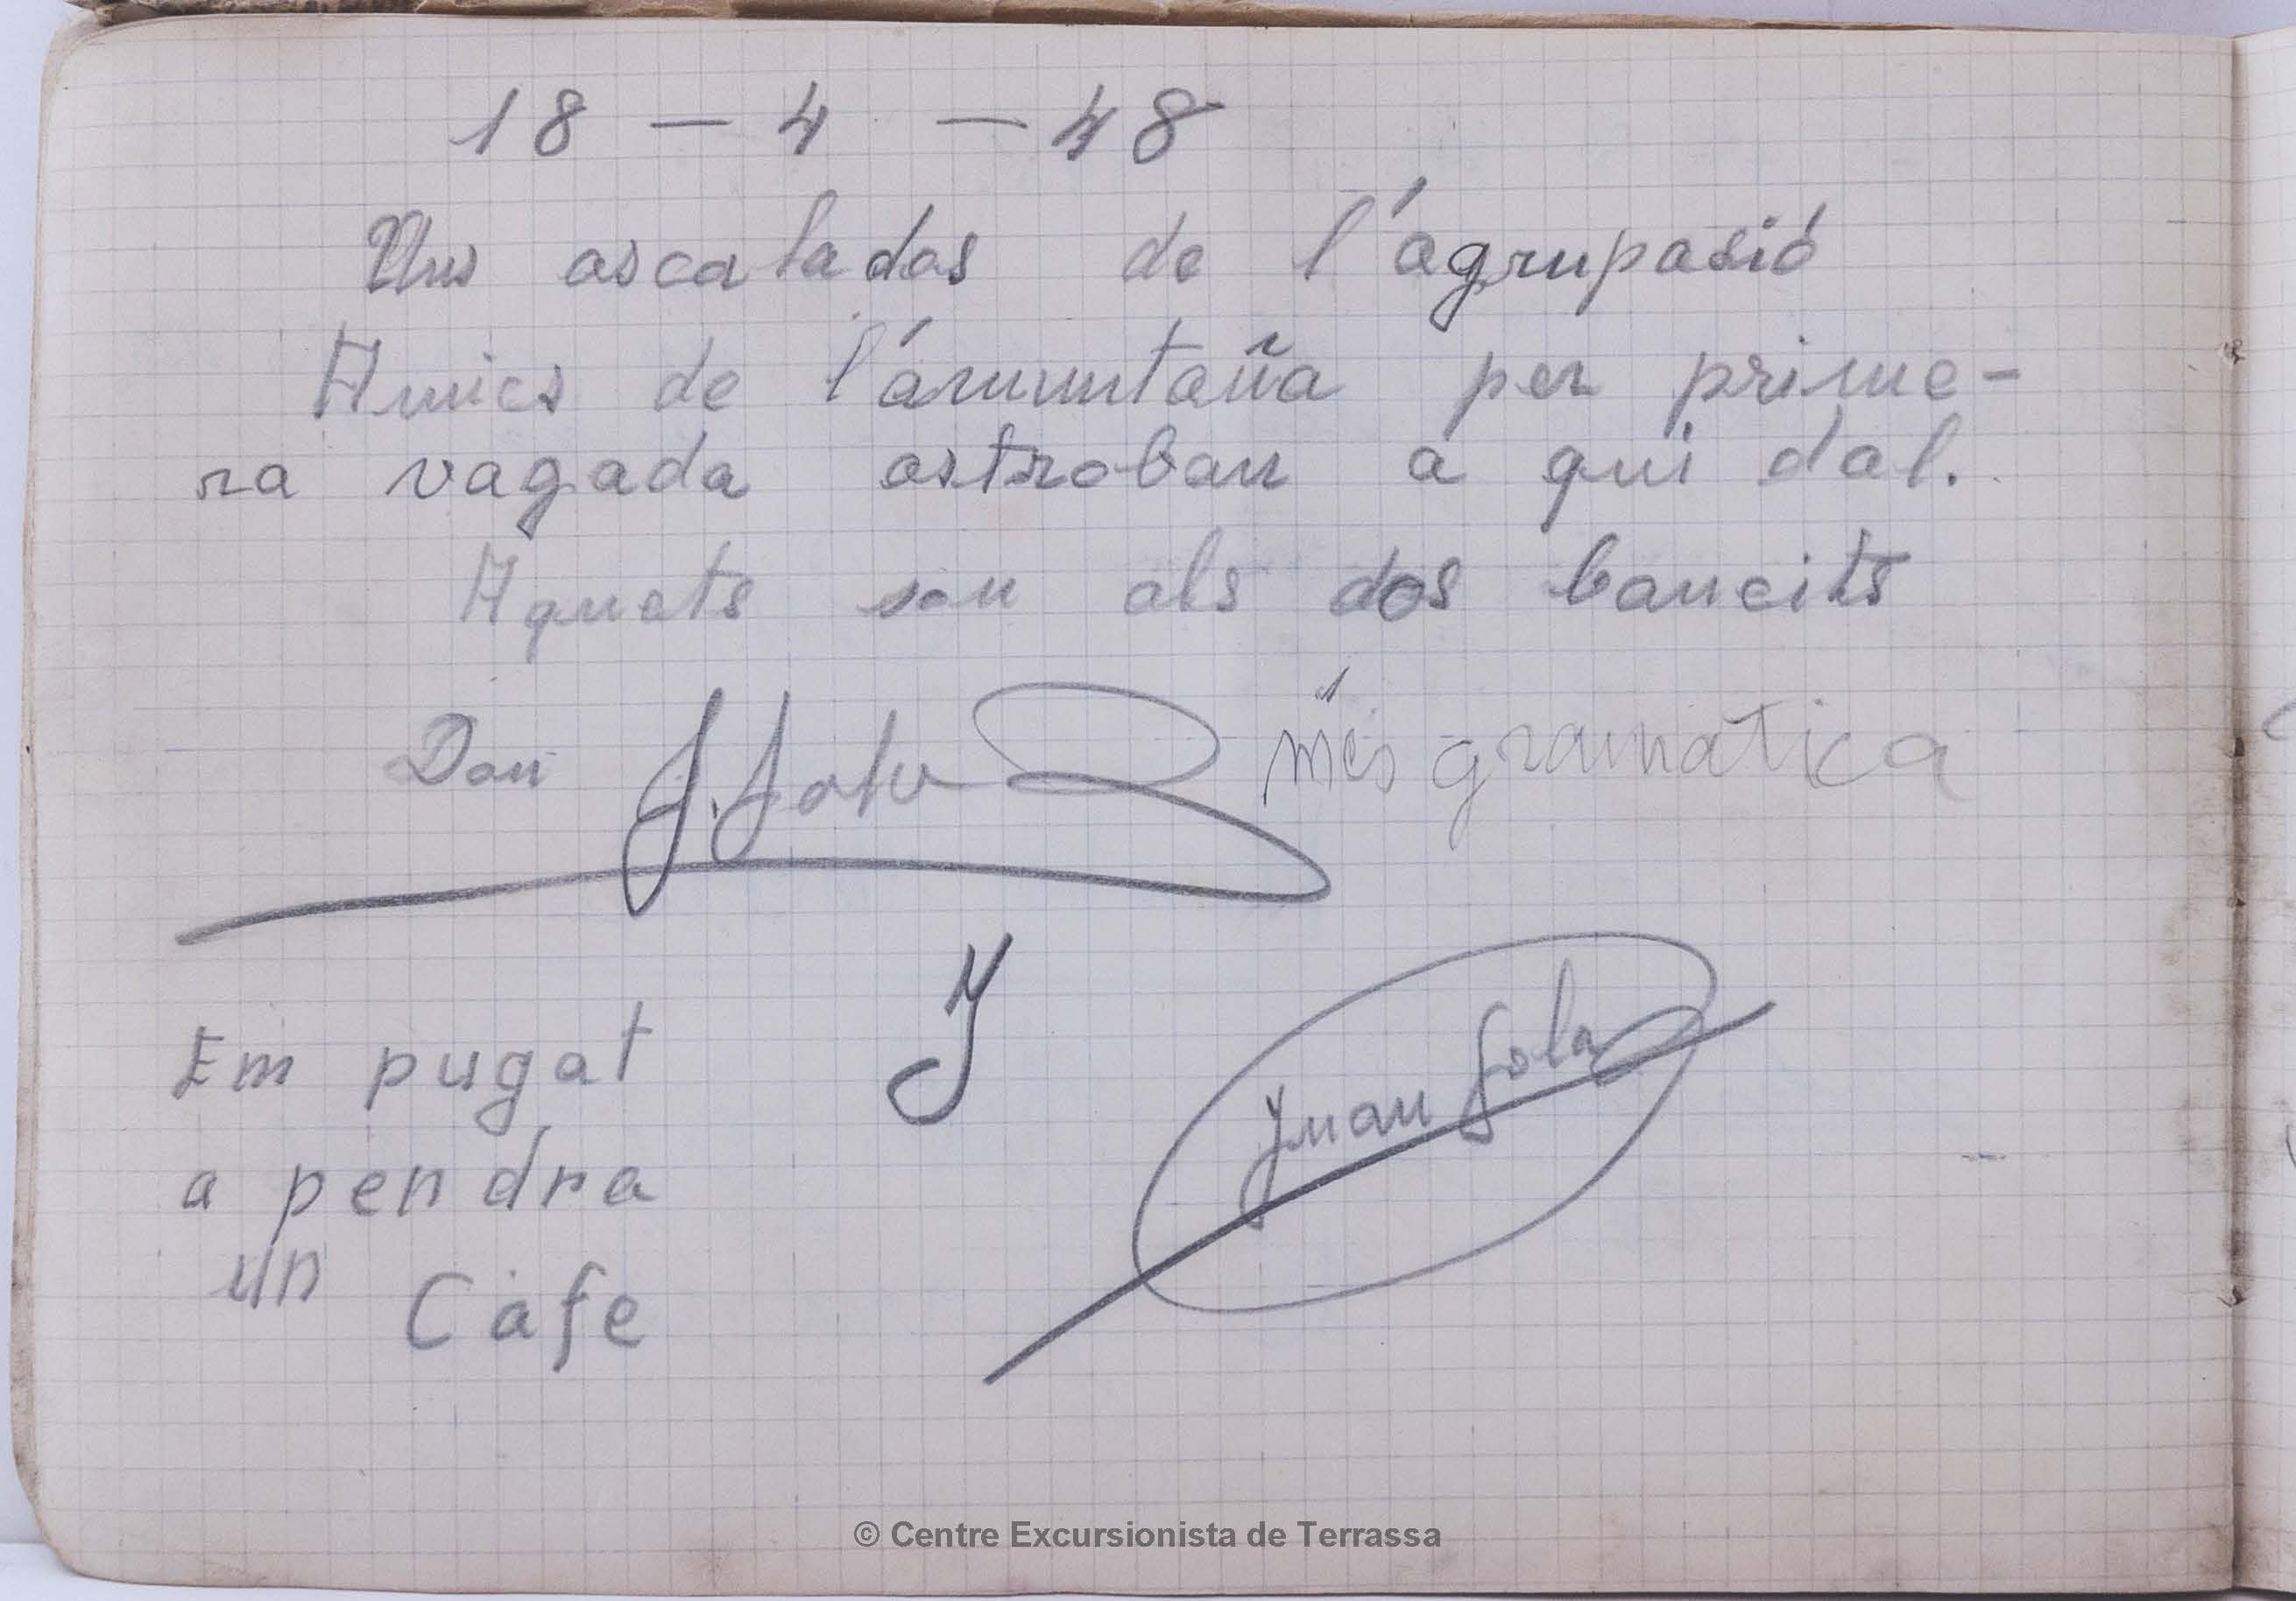 18 - 4 - 48
Uns ascaladas de l'agrupasió
Amics de l'amuntaña per prime-
ra vagada astroban a qui dal.
Aquets son als dos bancits
Don J. més gramàtica
Y
Juan Sola
Em pugat
a pendra
un Cafe
© Centre Excursionista de Terrassa